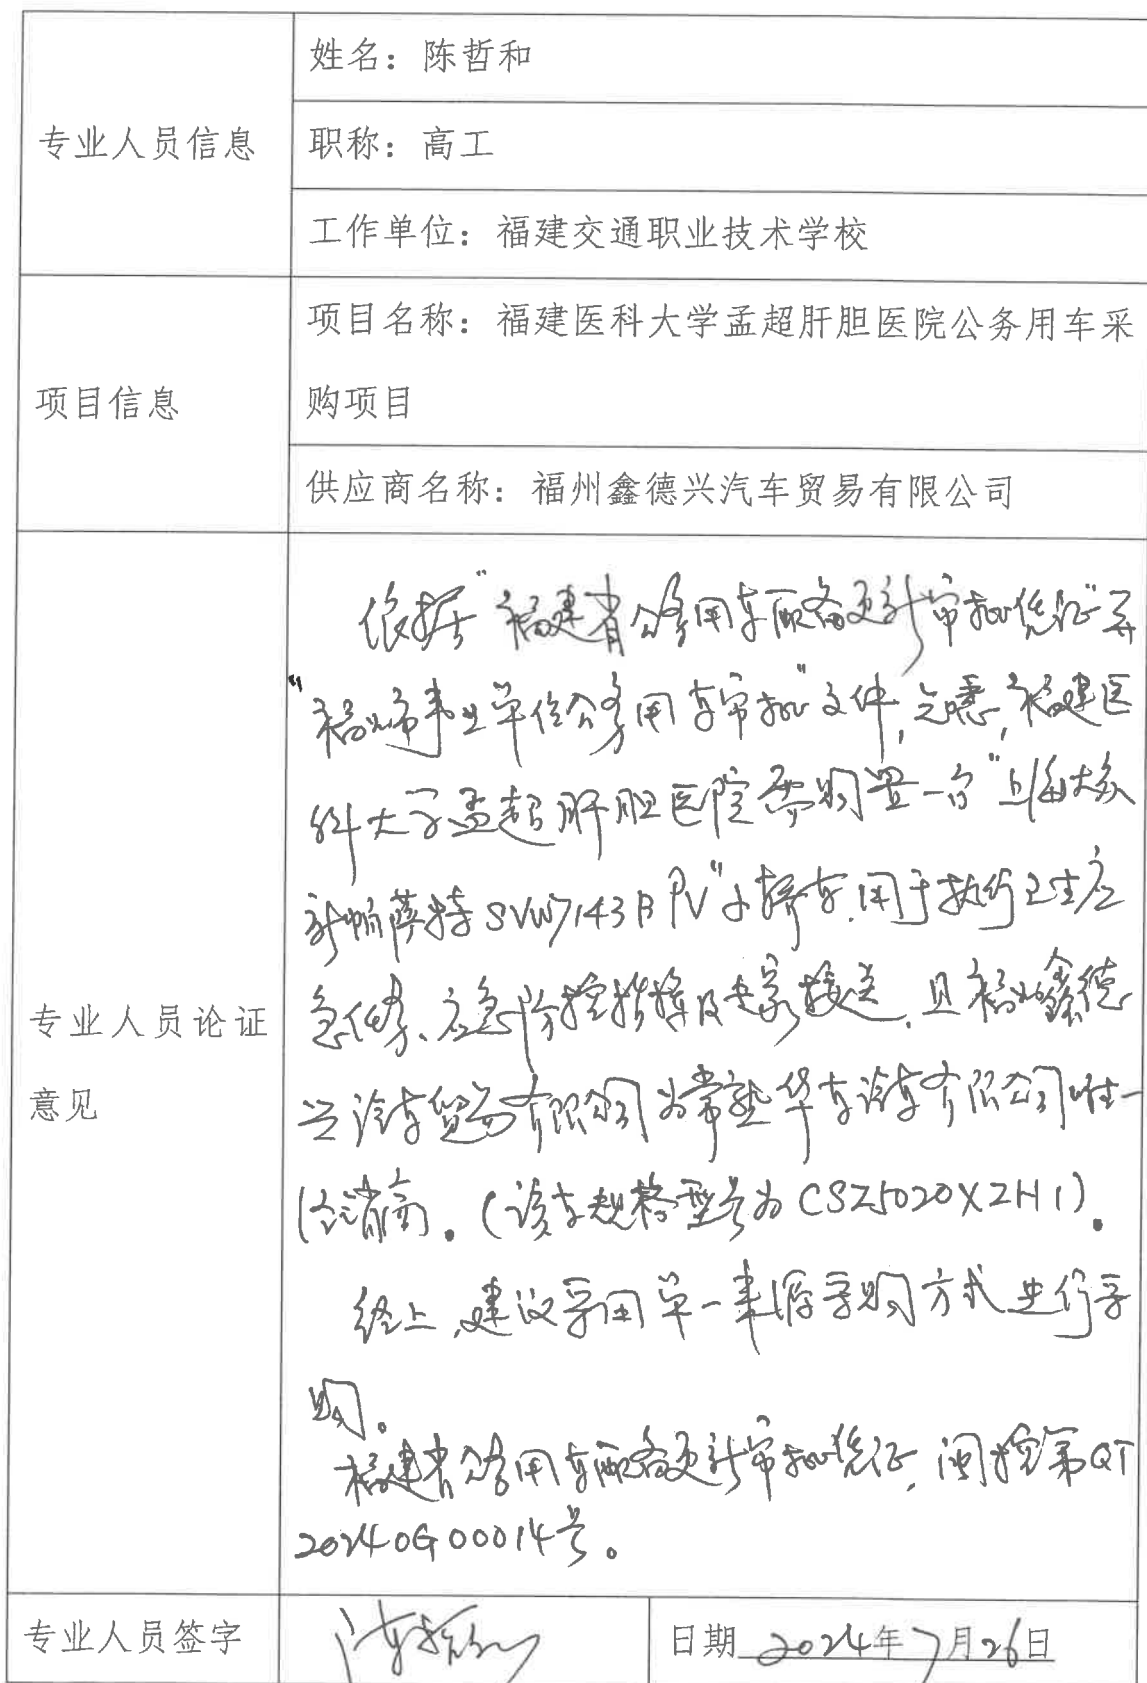 专业人员信息
姓名：陈哲和
职称：高工
工作单位：福建交通职业技术学校
项目信息
项目名称：福建医科大学孟超肝胆医院公务用车采
购项目
供应商名称：福州鑫德兴汽车贸易有限公司
专业人员论证
意见
依据“福建省公务用车配备更新审批凭证”及
“福州市事业单位公务用车审批”文件，知悉，福建医
科大学孟超肝胆医院需购置一台“上海大众
新帕萨特SVW7143BPV”小轿车，用于执行卫生应
急任务、应急防控指挥及专家接送，且福州鑫德
兴汽车贸易有限公司为常熟华东汽车有限公司唯一
经销商。（该车规格型号为CSZ5020XZH1）。
综上，建议采用单一来源采购方式进行采
购。
福建省公务用车配备更新审批凭证，闽控第QT
20240G00014号。
专业人员签字
陈哲和
日期 2024年7月26日